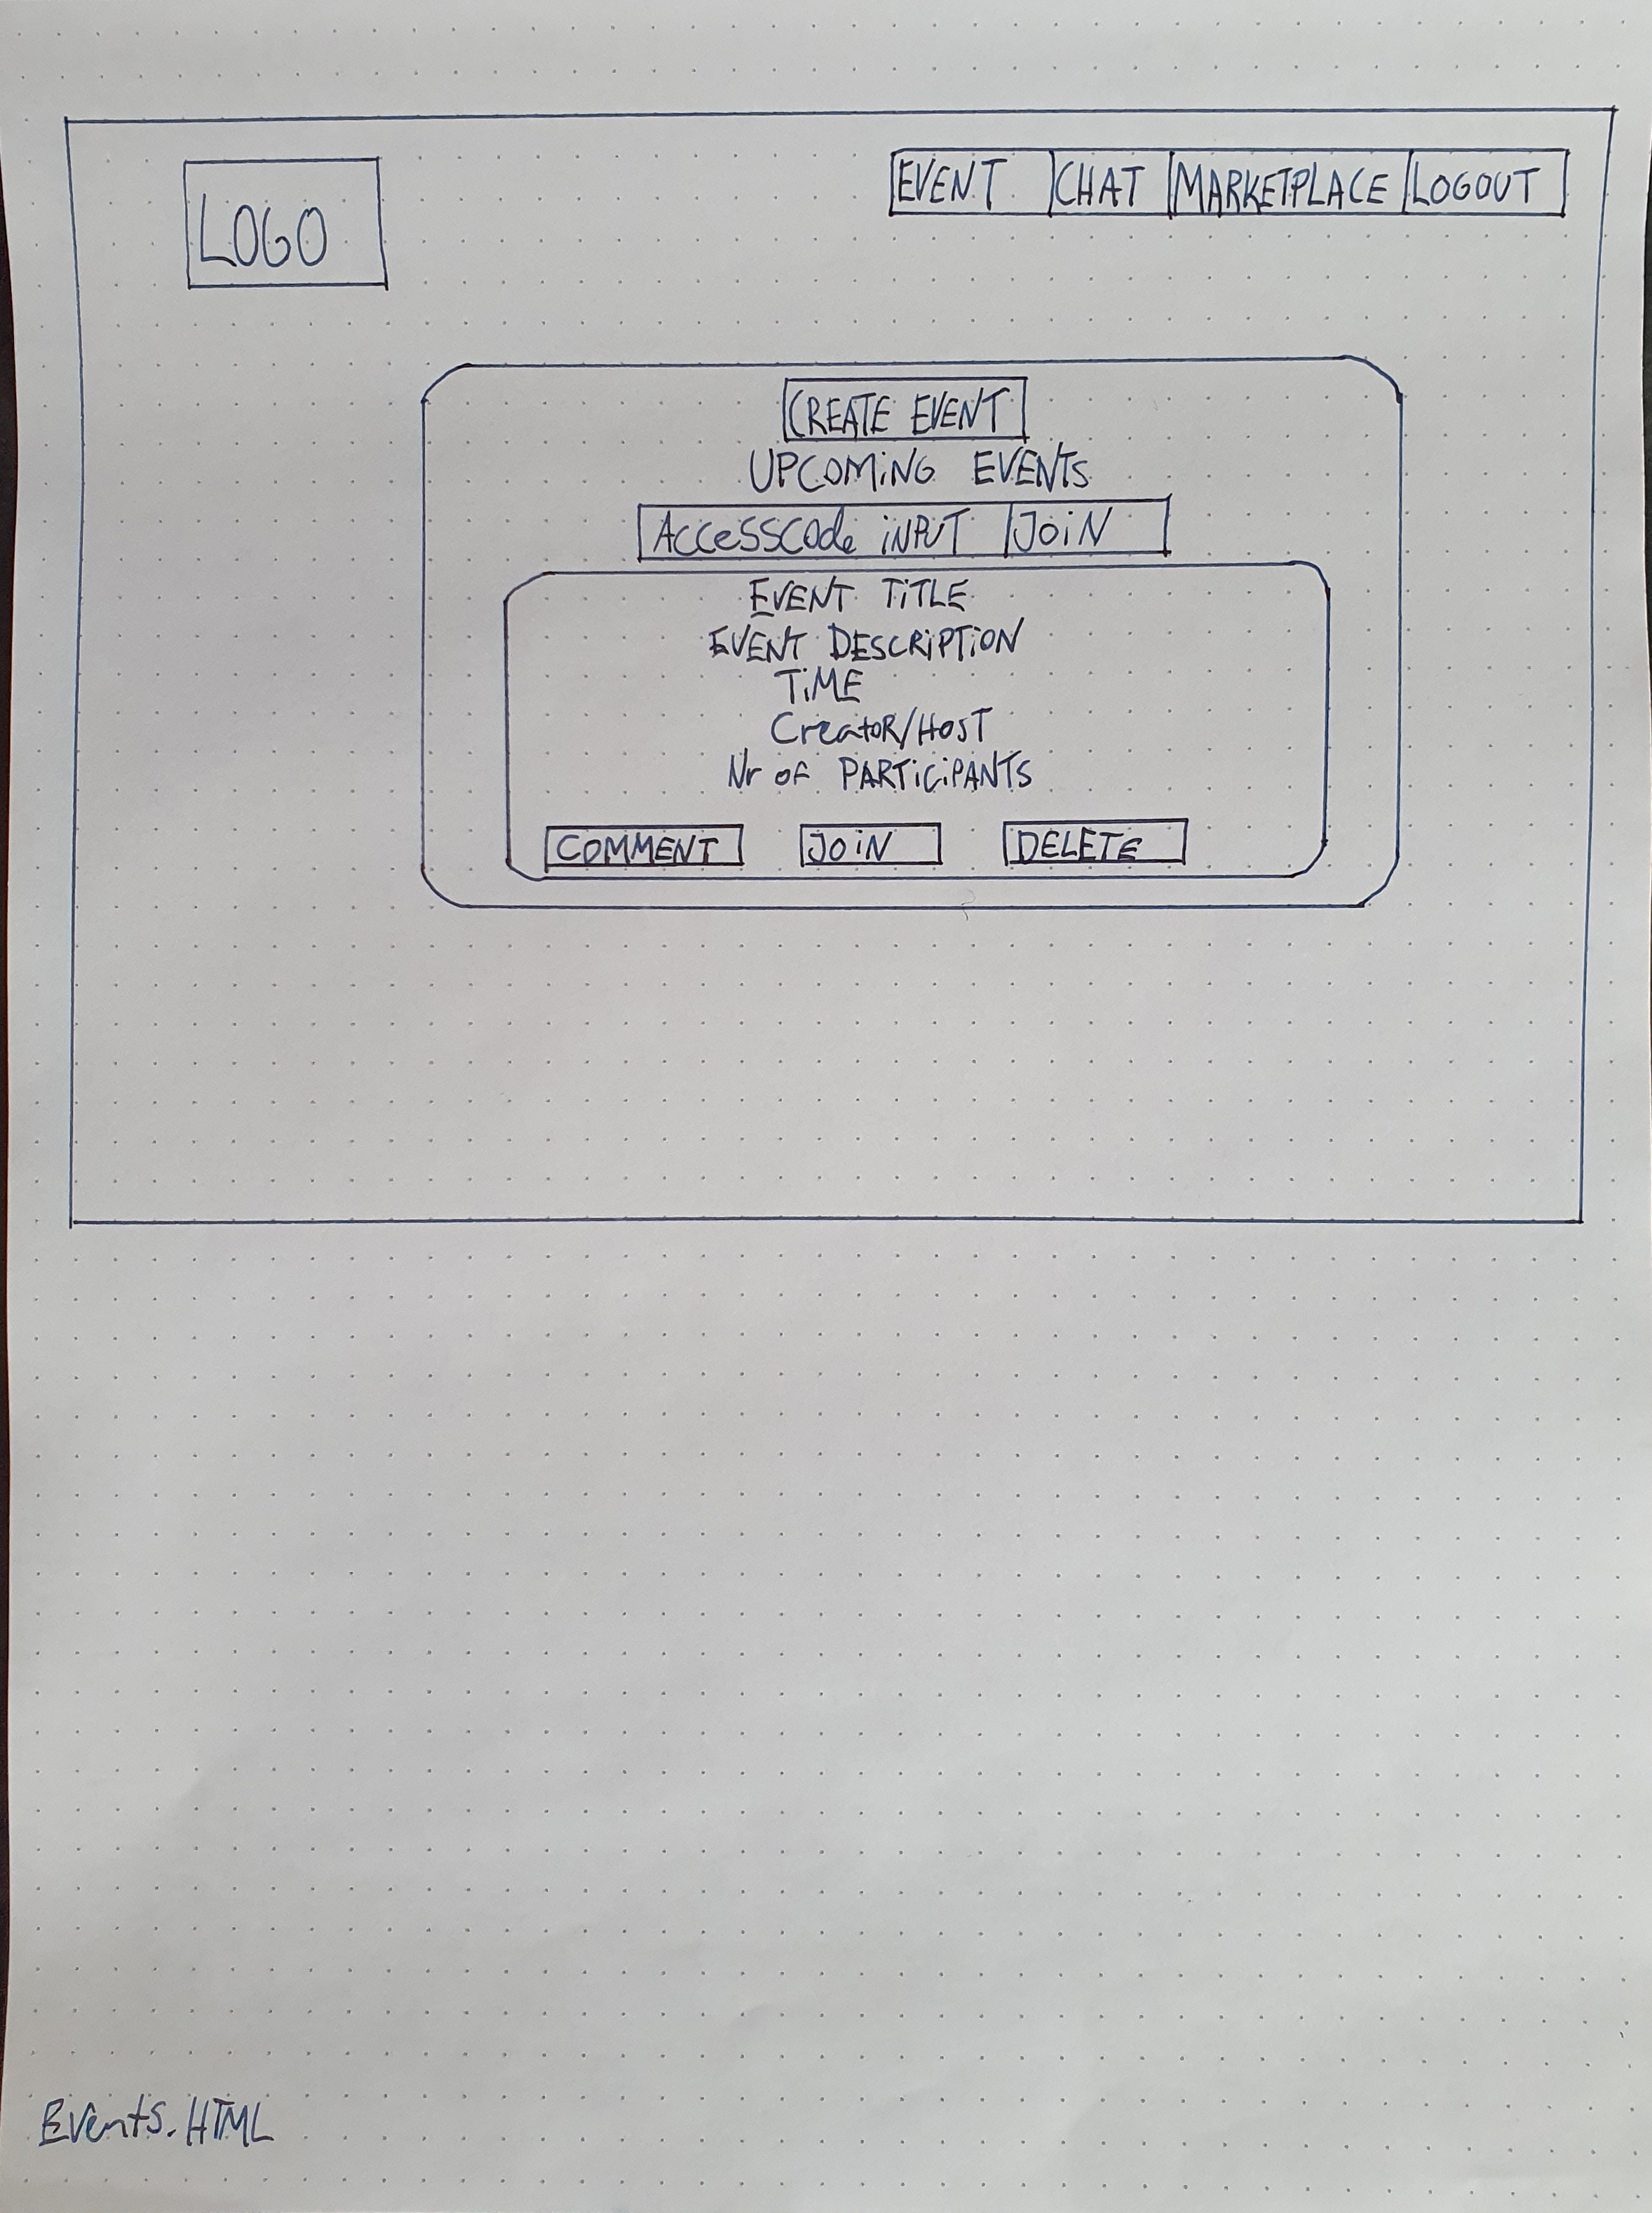 LOGO
EVENT CHAT MARKETPLACE LOGOUT
CREATE EVENT
UPCOMING EVENTS
Accesscode INPUT JOIN
EVENT TITLE
EVENT DESCRIPTION
TIME
Creator/HOST
Nr of PARTICIPANTS
COMMENT JOIN DELETE
Events.HTML